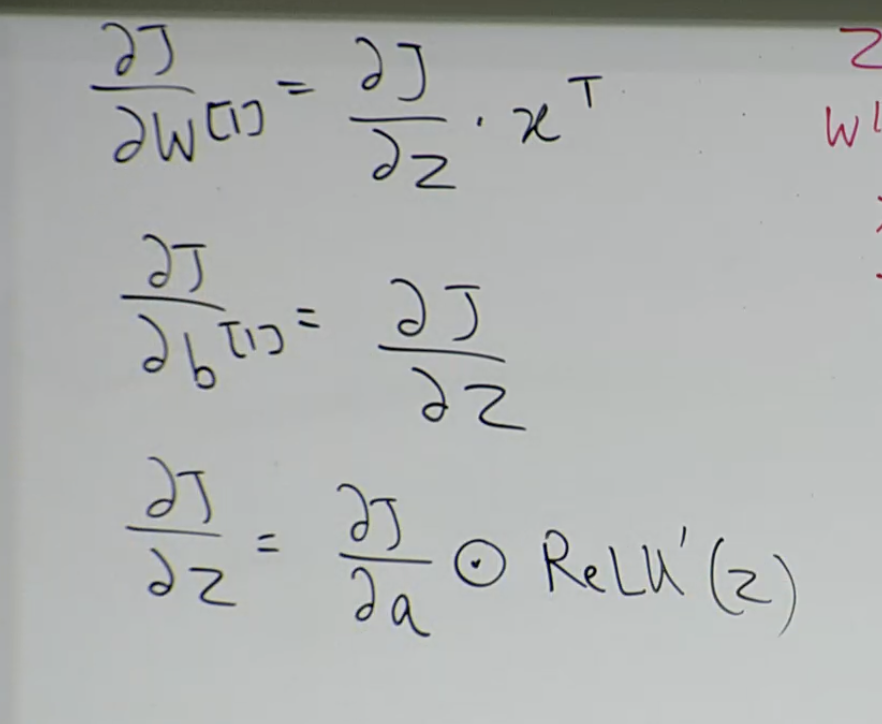 ∂J/∂W[1] = ∂J/∂z · xᵀ
∂J/∂b[1] = ∂J/∂z
∂J/∂z = ∂J/∂a ⊙ ReLU′(z)
z
W